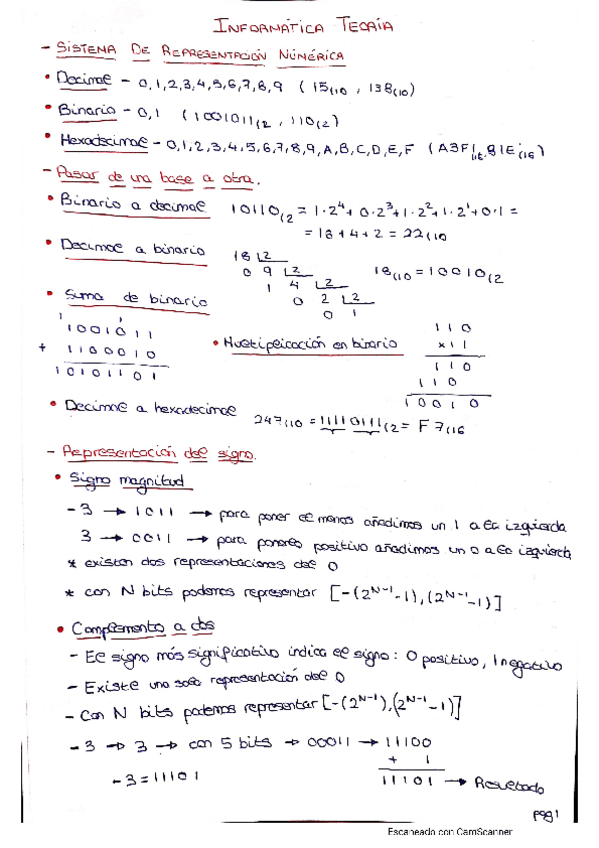 INFORMÁTICA TEORÍA
- SISTEMA DE REPRESENTACIÓN NÚMERICA
• Decimal - 0,1,2,3,4,5,6,7,8,9 ( 15(10 , 138(10)
• Binario - 0,1 ( 1001011(2 , 110(2)
• Hexadecimal - 0,1,2,3,4,5,6,7,8,9,A,B,C,D,E,F ( A3F(16, 81E(16)
- Pasar de una base a otra.
• Binario a decimal 10110(2 = 1·2⁴+ 0·2³+1·2²+1·2¹+0·1 =
= 18+4+2 = 22(10
• Decimal a binario 18 2
0 9 2 18(10 = 10010(2
1 4 2
0 2 2
0 1
• Suma de binario
1 1
1001011
+ 1100010
10101101
• Multiplicación en binario
110
x11
110
110
10010
• Decimal a hexadecimal 247(10 = 11110111(2 = F7(16
- Representación del signo.
• Signo magnitud
-3 → 1011 → para poner el menos añadimos un 1 a la izquierda
3 → 0011 → para ponerlo positivo añadimos un 0 a la izquierda
* existen dos representaciones del 0
* con N bits podemos representar [-(2ᴺ⁻¹-1),(2ᴺ⁻¹-1)]
• Complemento a dos
- El signo más significativo indica el signo: 0 positivo, 1 negativo
- Existe una sola representación del 0
- Con N bits podemos representar [-(2ᴺ⁻¹),(2ᴺ⁻¹-1)]
-3 → 3 → con 5 bits → 00011 → 11100
+ 1
-3 = 11101 11101 → Resultado
pag 1
Escaneado con CamScanner